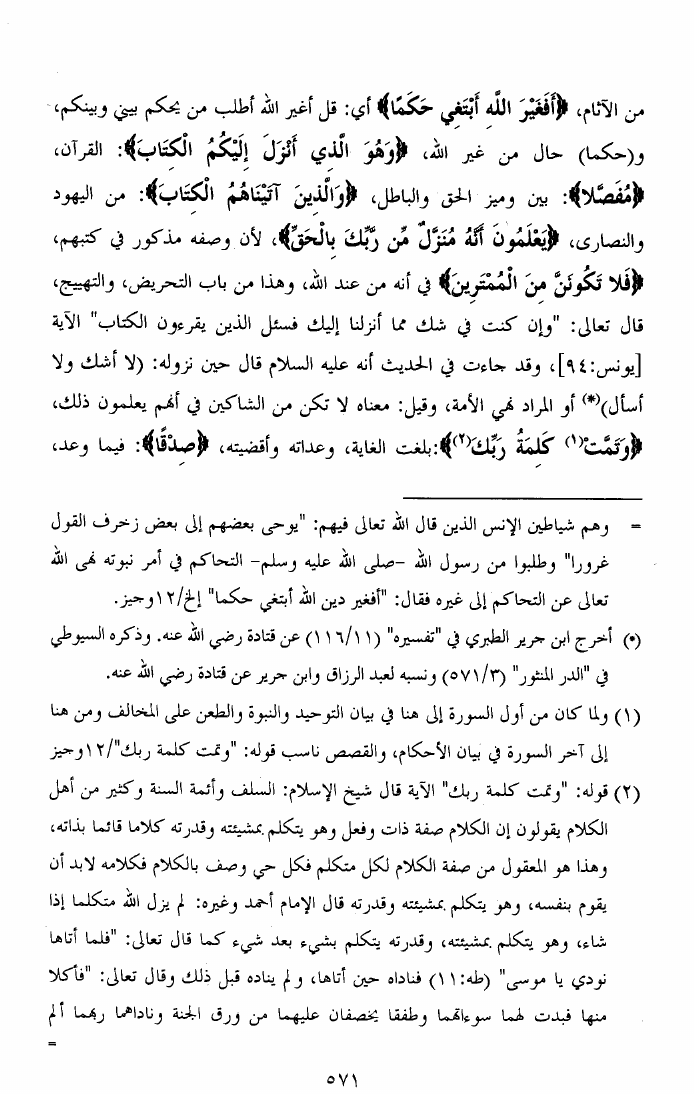 من الآثام، ﴿أَفَغَيْرَ اللَّهِ أَبْتَغِي حَكَمًا﴾ أي: قل أغير الله أطلب من يحكم بيني وبينكم،
و(حكما) حال من غير الله، ﴿وَهُوَ الَّذِي أَنْزَلَ إِلَيْكُمُ الْكِتَابَ﴾: القرآن،
﴿مُفَصَّلا﴾: بين وميز الحق والباطل، ﴿وَالَّذِينَ آتَيْنَاهُمُ الْكِتَابَ﴾: من اليهود
والنصارى، ﴿يَعْلَمُونَ أَنَّهُ مُنَزَّلٌ مِّن رَّبِّكَ بِالْحَقِّ﴾، لأن وصفه مذكور في كتبهم،
﴿فَلا تَكُونَنَّ مِنَ الْمُمْتَرِينَ﴾ في أنه من عند الله، وهذا من باب التحريض، والتهييج،
قال تعالى: "وإن كنت في شك مما أنزلنا إليك فسئل الذين يقرءون الكتاب" الآية
[يونس:٩٤]، وقد جاءت في الحديث أنه عليه السلام قال حين نزوله: (لا أشك ولا
أسأل)(*) أو المراد نهي الأمة، وقيل: معناه لا تكن من الشاكين في أنهم يعلمون ذلك،
﴿وَتَمَّتْ(١) كَلِمَةُ رَبِّكَ(٢)﴾:بلغت الغاية، وعداته وأقضيته، ﴿صِدْقًا﴾: فيما وعد،
= وهم شياطين الإنس الذين قال الله تعالى فيهم: "يوحى بعضهم إلى بعض زخرف القول
غرورا" وطلبوا من رسول الله -صلى الله عليه وسلم- التحاكم في أمر نبوته نهى الله
تعالى عن التحاكم إلى غيره فقال: "أفغير دين الله أبتغي حكما" إلخ/١٢وجيز.
(*) أخرج ابن جرير الطبري في "تفسيره" (١١٦/١١) عن قتادة رضي الله عنه. وذكره السيوطي
في "الدر المنثور" (٥٧١/٣) ونسبه لعبد الرزاق وابن جرير عن قتادة رضي الله عنه.
(١) ولما كان من أول السورة إلى هنا في بيان التوحيد والنبوة والطعن على المخالف ومن هنا
إلى آخر السورة في بيان الأحكام، والقصص ناسب قوله: "وتمت كلمة ربك"/١٢وجيز
(٢) قوله: "وتمت كلمة ربك" الآية قال شيخ الإسلام: السلف وأئمة السنة وكثير من أهل
الكلام يقولون إن الكلام صفة ذات وفعل وهو يتكلم بمشيئته وقدرته كلاما قائما بذاته،
وهذا هو المعقول من صفة الكلام لكل متكلم فكل حي وصف بالكلام فكلامه لابد أن
يقوم بنفسه، وهو يتكلم بمشيئته وقدرته قال الإمام أحمد وغيره: لم يزل الله متكلما إذا
شاء، وهو يتكلم بمشيئته، وقدرته يتكلم بشيء بعد شيء كما قال تعالى: "فلما أتاها
نودي يا موسى" (طه:١١) فناداه حين أتاها، ولم يناده قبل ذلك وقال تعالى: "فأكلا
منها فبدت لهما سوءاتهما وطفقا يخصفان عليهما من ورق الجنة وناداهما ربهما ألم
=
٥٧١